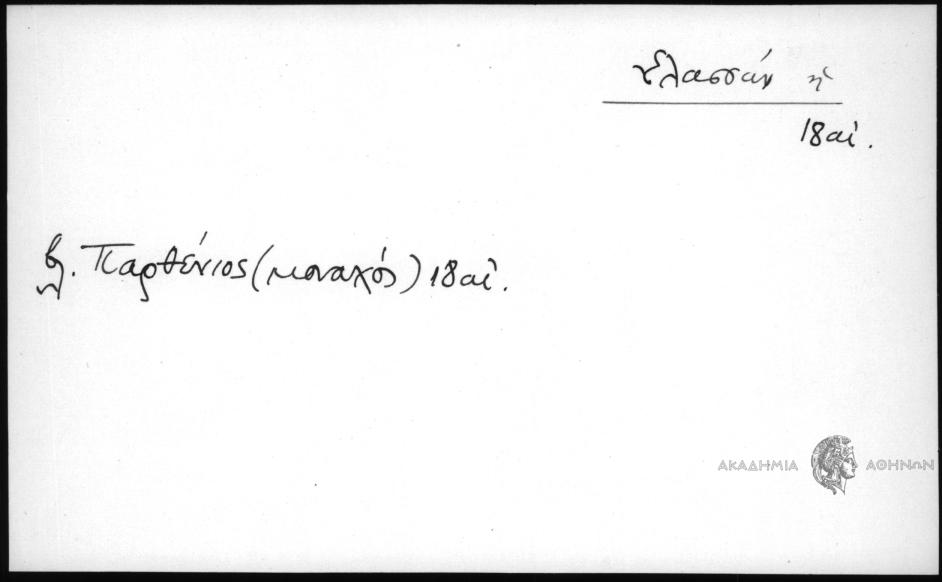 ἡ
18 αἰ.
βλ. Παρθένιος (μοναχός) 18 αἰ.
ΑΚΑΔΗΜΙΑ ΑΘΗΝΩΝ